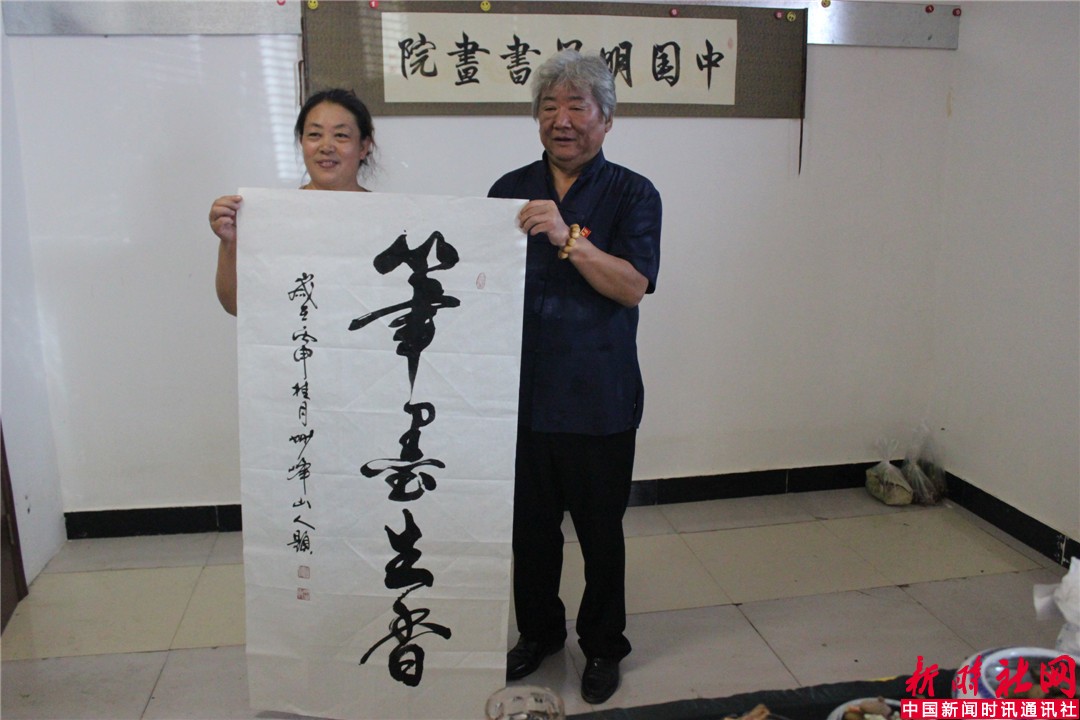 中国明書畫院
筆墨生香
歲在丙申桂月妙峰山人題
新时社网
中国新闻时讯通讯社